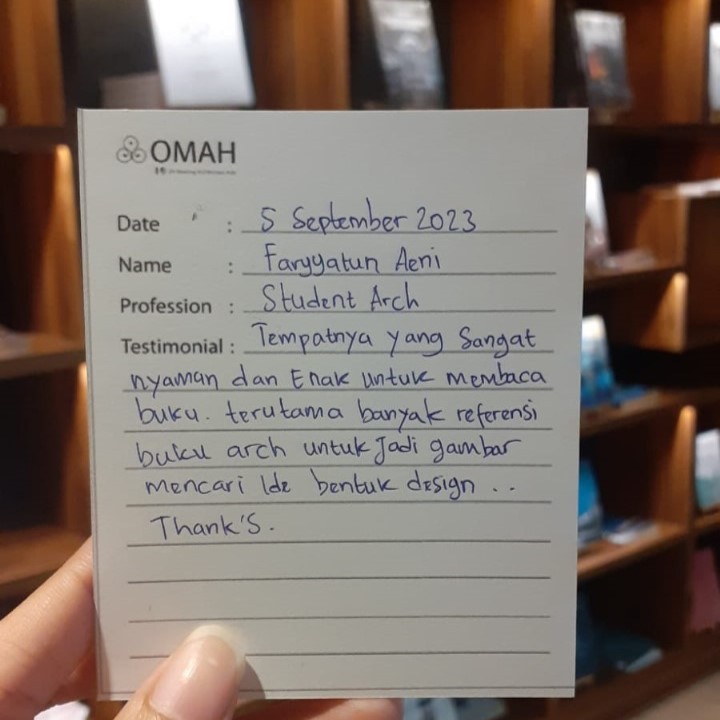 OMAH
Date : 5 September 2023
Name : Faryyatun Aeni
Profession : Student Arch
Testimonial : Tempatnya yang Sangat
nyaman dan Enak untuk membaca
buku. terutama banyak referensi
buku arch untuk Jadi gambar
mencari Ide bentuk design ..
Thank'S.